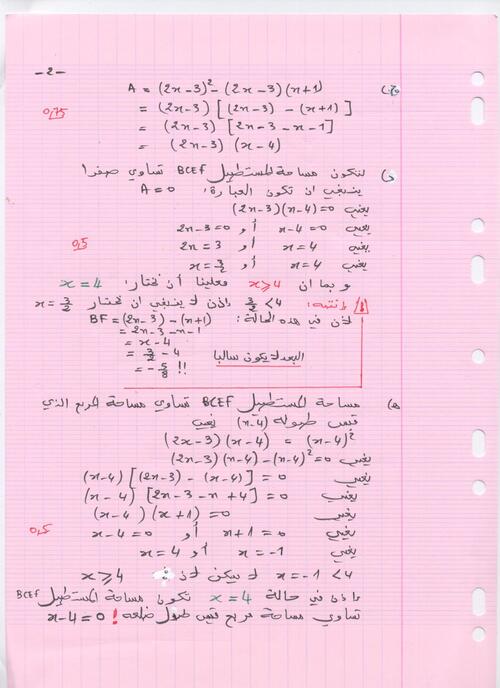 - 2 -
ج) A = (2x-3)² - (2x-3)(x+1)
0,75
= (2x-3) [(2x-3) - (x+1)]
= (2x-3) [2x-3-x-1]
= (2x-3) (x-4)
د) لتكون مساحة المستطيل BCEF تساوي صفرا
ينبغي ان تكون العبارة: A = 0
يعني (2x-3)(x-4) = 0
يعني x-4=0 أو 2x-3=0
0,5
يعني x=4 أو 2x=3
يعني x=4 أو x=3/2
و بما ان x⩾4 فعلينا أن نختار: x = 4
! إنتبه: 3/2 < 4 إذن لا ينبغي ان نختار x = 3/2
لأن في هذه الحالة: BF = (2x-3) - (x+1)
= 2x-3-x-1
= x-4
= 3/2 - 4
البعد لا يكون سالبا
= -5/8 !!
ه) مساحة المستطيل BCEF تساوي مساحة المربع الذي
قيس طوله (x-4) يعني
(2x-3)(x-4) = (x-4)²
يعني (2x-3)(x-4) - (x-4)² = 0
يعني (x-4) [(2x-3) - (x-4)] = 0
يعني (x-4) [2x-3-x+4] = 0
يعني (x-4) (x+1) = 0
0,5
يعني x+1=0 أو x-4=0
يعني x=-1 أو x=4
x=-1 < 4 لا يمكن لأن x⩾4
إذن في حالة x = 4 تكون مساحة المستطيل BCEF
تساوي مساحة مربع قيس طول ضلعه x-4=0 !